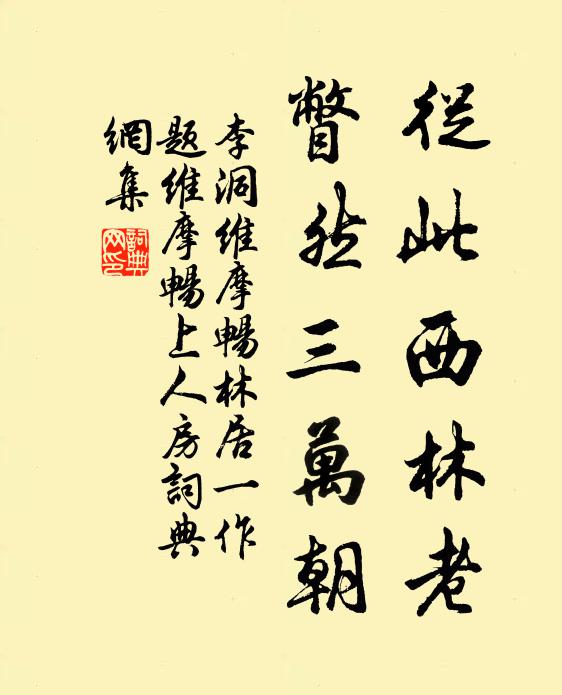 從此西林老
瞥然三萬朝
李洞維摩暢林居一作
題維摩暢上人房詞典
網集
詞典网印